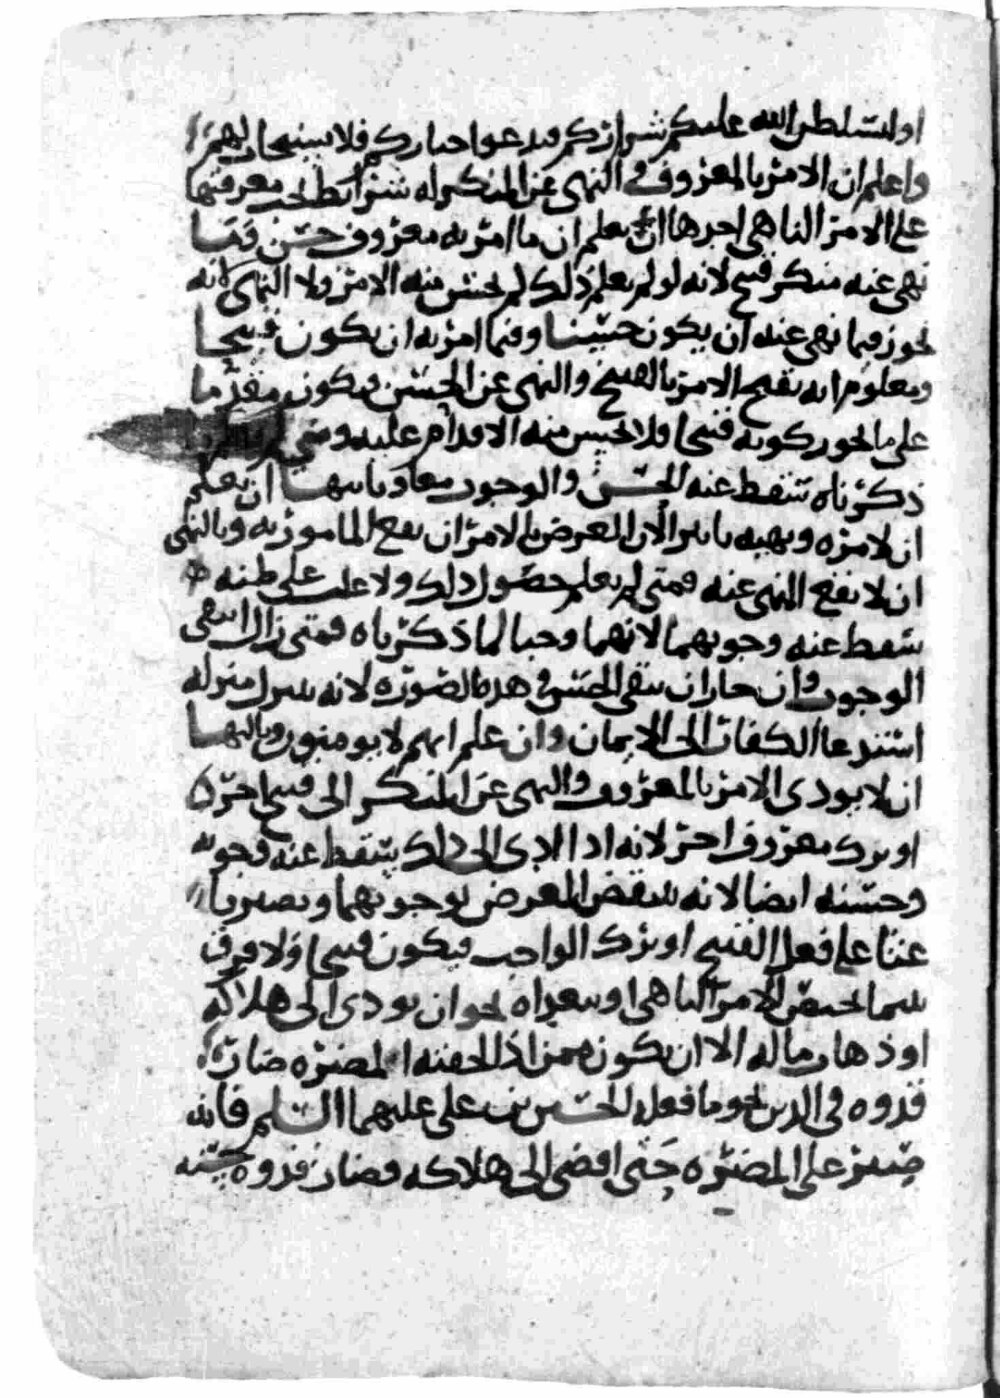 او ليسلطن الله عليكم شراركم فيدعوا خياركم فلا يستجاب لهم
واعلم ان الامر بالمعروف والنهي عن المنكر له شرائط يجب معرفتها
على الامر الناهي احدها ان يعلم ان ما امر به معروف حسن وما
نهى عنه منكر قبيح لانه لو لم يعلم ذلك لم يحسن منه الامر ولا النهي لانه
يجوز فيما نهى عنه ان يكون حسنا وفيما امر به ان يكون قبيحا
ومعلوم انه يقبح الامر بالقبيح والنهي عن الحسن فيكون مقدما
على ما يجوز كونه قبيحا فلا يحسن منه الاقدام عليه ومتى
ذكرناه سقط عنه الحسن والوجوب معا وثانيها ان يعلم
ان لامره ونهيه تاثيرا لان الغرض بالامر ان يقع المامور به وبالنهي
ان لا يقع المنهي عنه فمتى لم يعلم حصول ذلك ولا غلب على ظنه
سقط عنه وجوبهما لانهما وجبا لما ذكرناه فمتى زال انتفى
الوجوب وان جاز ان يبقى الحسن في هذه الصورة لانه ينزل منزلة
استدعا الكفار الى الايمان وان علم انهم لا يومنون وثالثها
ان لا يودي الامر بالمعروف والنهي عن المنكر الى قبيح اخر
او ترك معروف اخر لانه اذا ادى الى ذلك سقط عنه وجوبه
وحسنه ايضا لانه ينقض الغرض بوجوبهما ويصير با
عثا على فعل القبيح او ترك الواجب فيكون قبيحا ولا فرق
بين ما يخص الامر الناهي او يتعداه نحو ان يودي الى هلاكه
او ذهاب ماله الا ان يكون ممن اذا لحقته المضرة صارت
قدوة في الدين نحو ما فعله الحسين بن علي عليهما السلم فانه
صبر على المضرة حتى افضى الى هلاكه فصار قدوة حسنه